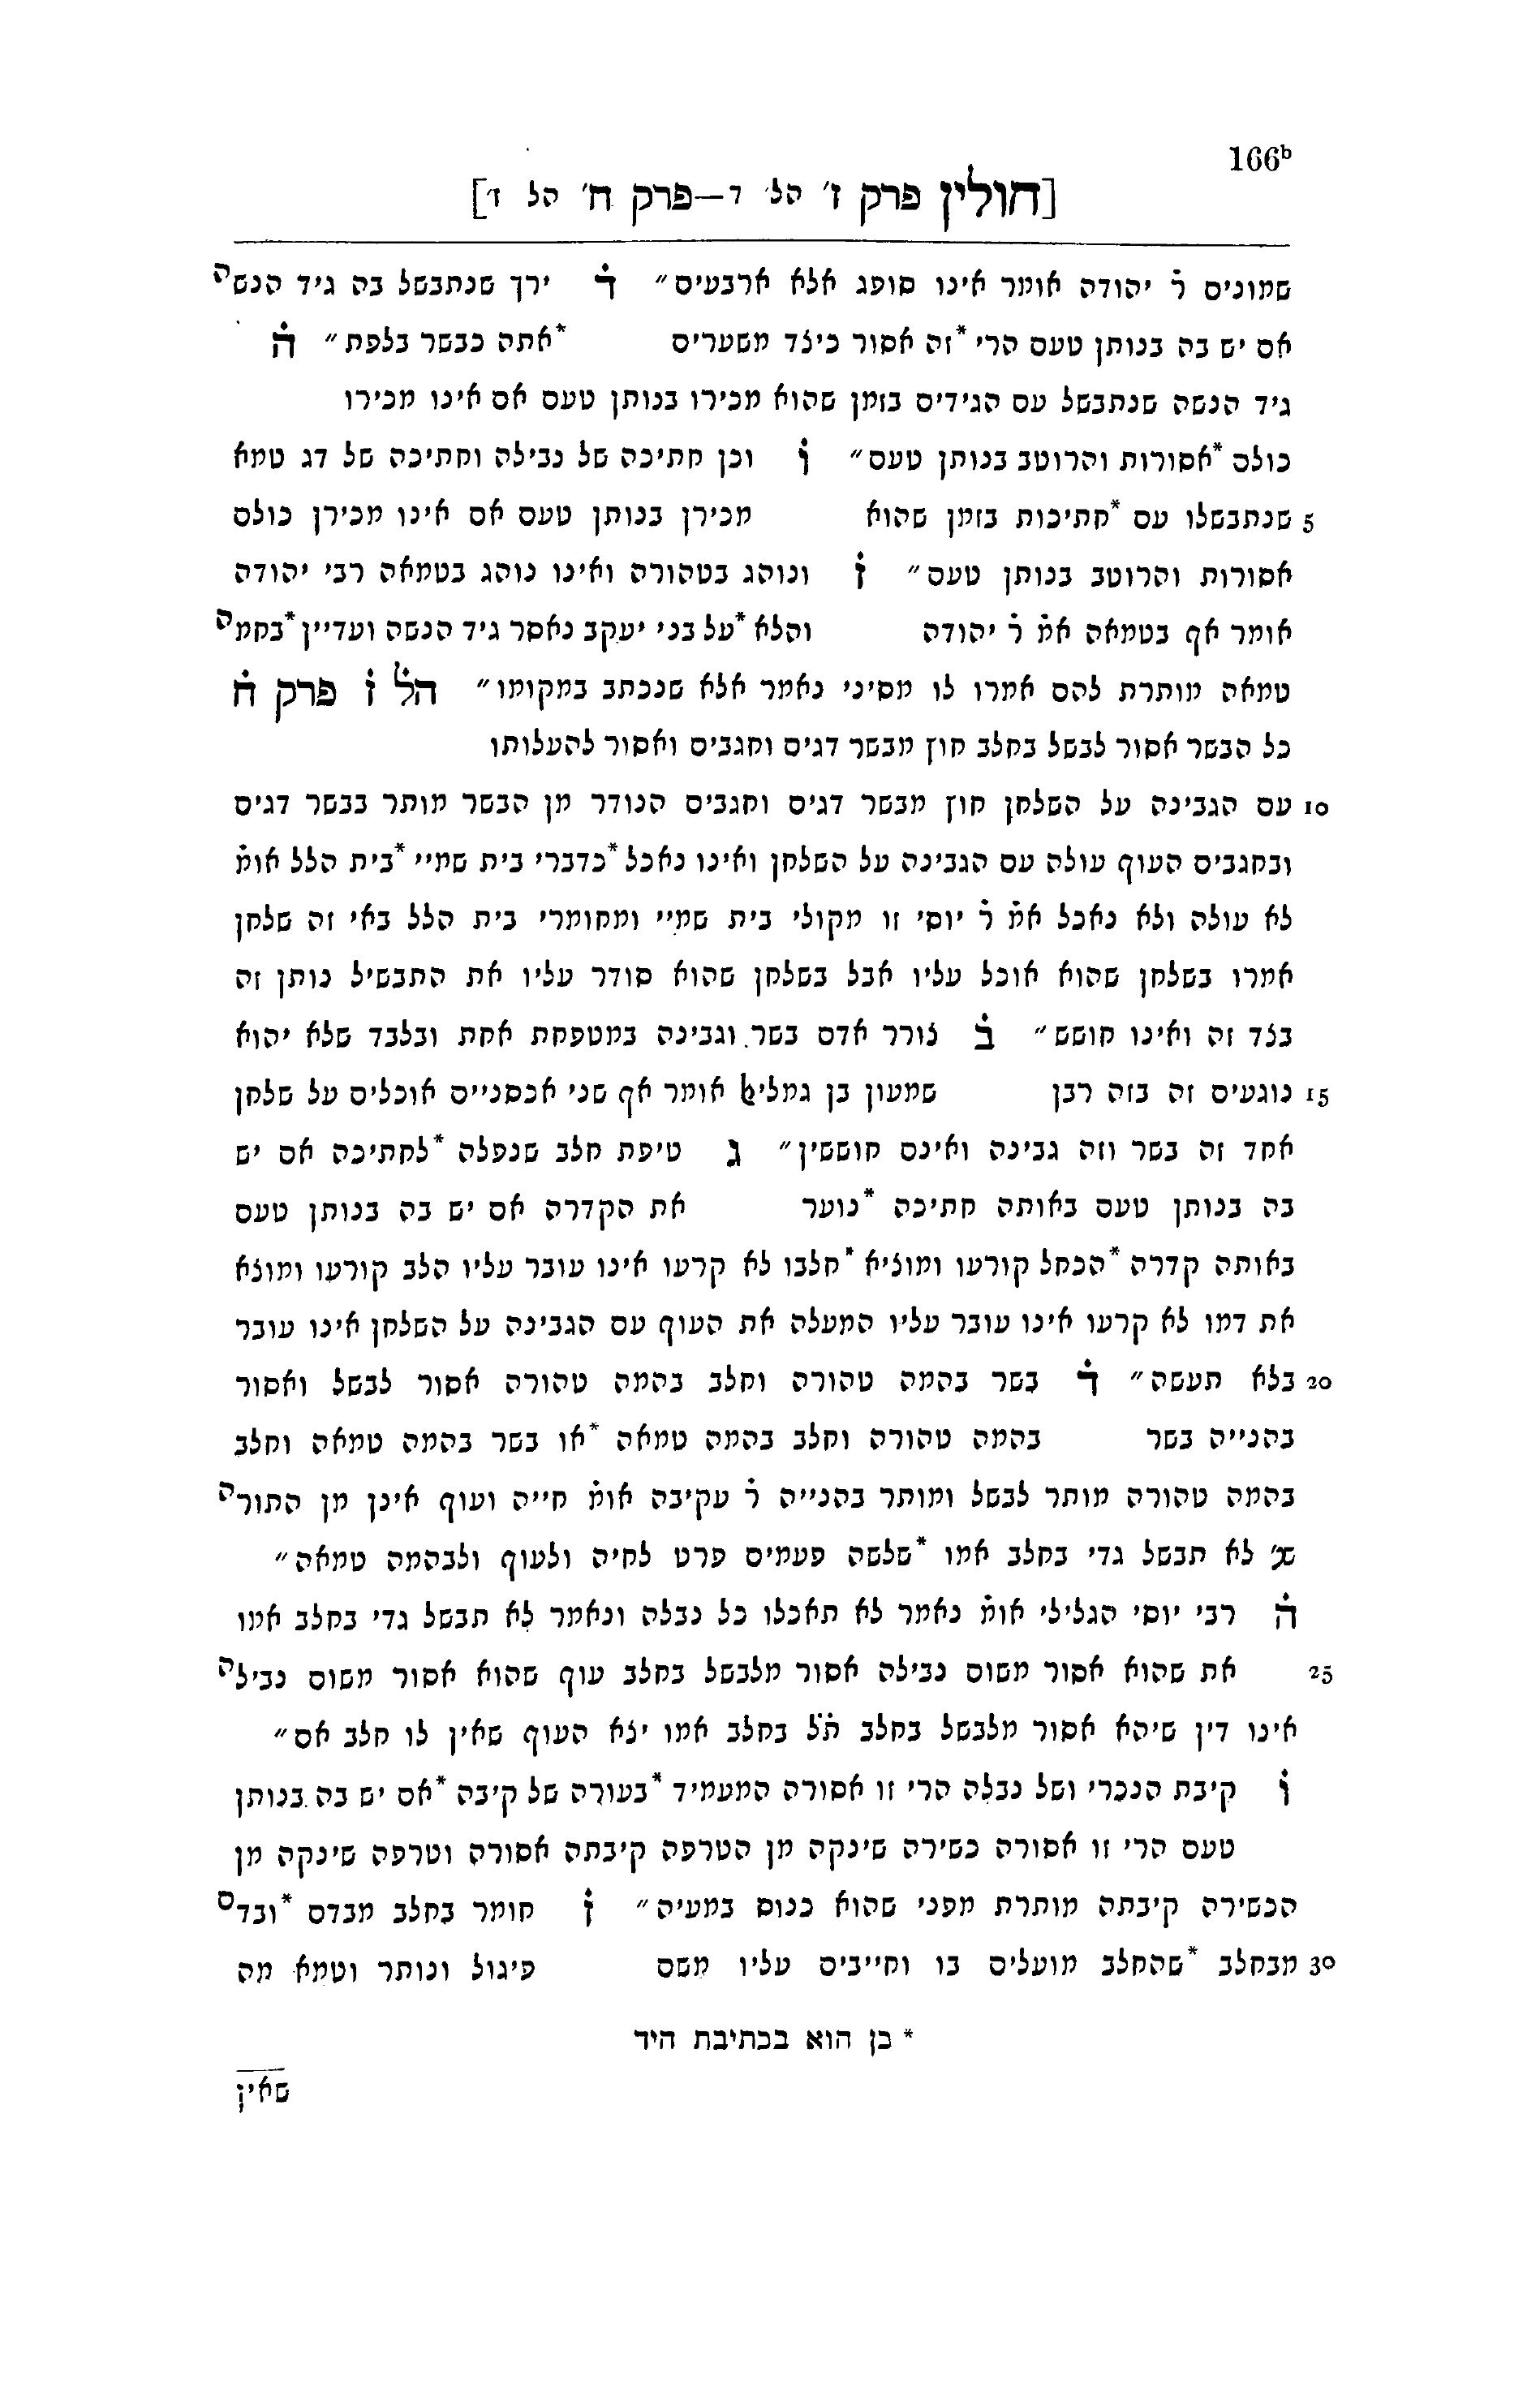 166ᵇ
[חולין פרק ז׳ הל׳ ד—פרק ח׳ הל ז׳]
שמונים ר֗ יהודה אומר אינו סופג אלא ארבעים״ ד֗ ירך שנתבשל בה גיד הנשה
אם יש בה בנותן טעם הרי *זה אסור כיצד משערים *אתה כבשר בלפת״ ה֗
גיד הנשה שנתבשל עם הגידים בזמן שהוא מכירו בנותן טעם אם אינו מכירו
כולם *אסורות והרוטב בנותן טעם״ ו֗ וכן חתיכה של נבילה וחתיכה של דג טמא
5 שנתבשלו עם *חתיכות בזמן שהוא מכירן בנותן טעם אם אינו מכירן כולם
אסורות והרוטב בנותן טעם״ ז֗ ונוהג בטהורה ואינו נוהג בטמאה רבי יהודה
אומר אף בטמאה אמ֗ ר֗ יהודה והלא *על בני יעקב נאסר גיד הנשה ועדיין *בהמה
טמאה מותרת להם אמרו לו מסיני נאמר אלא שנכתב במקומו״ הל֗ ז֗ פרק ח֗
כל הבשר אסור לבשל בחלב חוץ מבשר דגים וחגבים ואסור להעלותו
10 עם הגבינה על השלחן חוץ מבשר דגים וחגבים הנודר מן הבשר מותר בבשר דגים
ובחגבים העוף עולה עם הגבינה על השלחן ואינו נאכל *כדברי בית שמיי *בית הלל אומ֗
לא עולה ולא נאכל אמ֗ ר֗ יוסי זו מקולי בית שמיי ומחומרי בית הלל באי זה שלחן
אמרו בשלחן שהוא אוכל עליו אבל בשלחן שהוא סודר עליו את התבשיל נותן זה
בצד זה ואינו חושש״ ב֗ צורר אדם בשר וגבינה במטפחת אחת ובלבד שלא יהוא
15 נוגעים זה בזה רבן שמעון בן גמליאל אומר אף שני אכסניים אוכלים על שלחן
אחד זה בשר וזה גבינה ואינם חוששין״ ג טיפת חלב שנפלה *לחתיכה אם יש
בה בנותן טעם באותה חתיכה *נוער את הקדרה אם יש בה בנותן טעם
באותה קדרה *הכחל קורעו ומוציא *חלבו לא קרעו אינו עובר עליו הלב קורעו ומוצא
את דמו לא קרעו אינו עובר עליו המעלה את העוף עם הגבינה על השלחן אינו עובר
20 בלא תעשה״ ד֗ בשר בהמה טהורה וחלב בהמה טהורה אסור לבשל ואסור
בהנייה בשר בהמה טהורה וחלב בהמה טמאה *או בשר בהמה טמאה וחלב
בהמה טהורה מותר לבשל ומותר בהנייה ר֗ עקיבה אומ֗ חייה ועוף אינן מן התורה
שנ׳ לא תבשל גדי בחלב אמו *שלשה פעמים פרט לחיה ולעוף ולבהמה טמאה״
ה֗ רבי יוסי הגלילי אומ֗ נאמר לא תאכלו כל נבלה ונאמר לא תבשל גדי בחלב אמו
25 את שהוא אסור משום נבילה אסור מלבשל בחלב עוף שהוא אסור משום נבילה
אינו דין שיהא אסור מלבשל בחלב ת֗ל֗ בחלב אמו יצא העוף שאין לו חלב אם״
ו֗ קיבת הנכרי ושל נבלה הרי זו אסורה המעמיד *בעורה של קיבה *אם יש בה בנותן
טעם הרי זו אסורה כשירה שינקה מן הטרפה קיבתה אסורה וטרפה שינקה מן
הכשירה קיבתה מותרת מפני שהוא כנוס במעיה״ ז֗ חומר בחלב מבדם *ובדם
30 מבחלב *שהחלב מועלים בו וחייבים עליו משם פיגול ונותר וטמא מה
* כן הוא בכתיבת היד
שאין